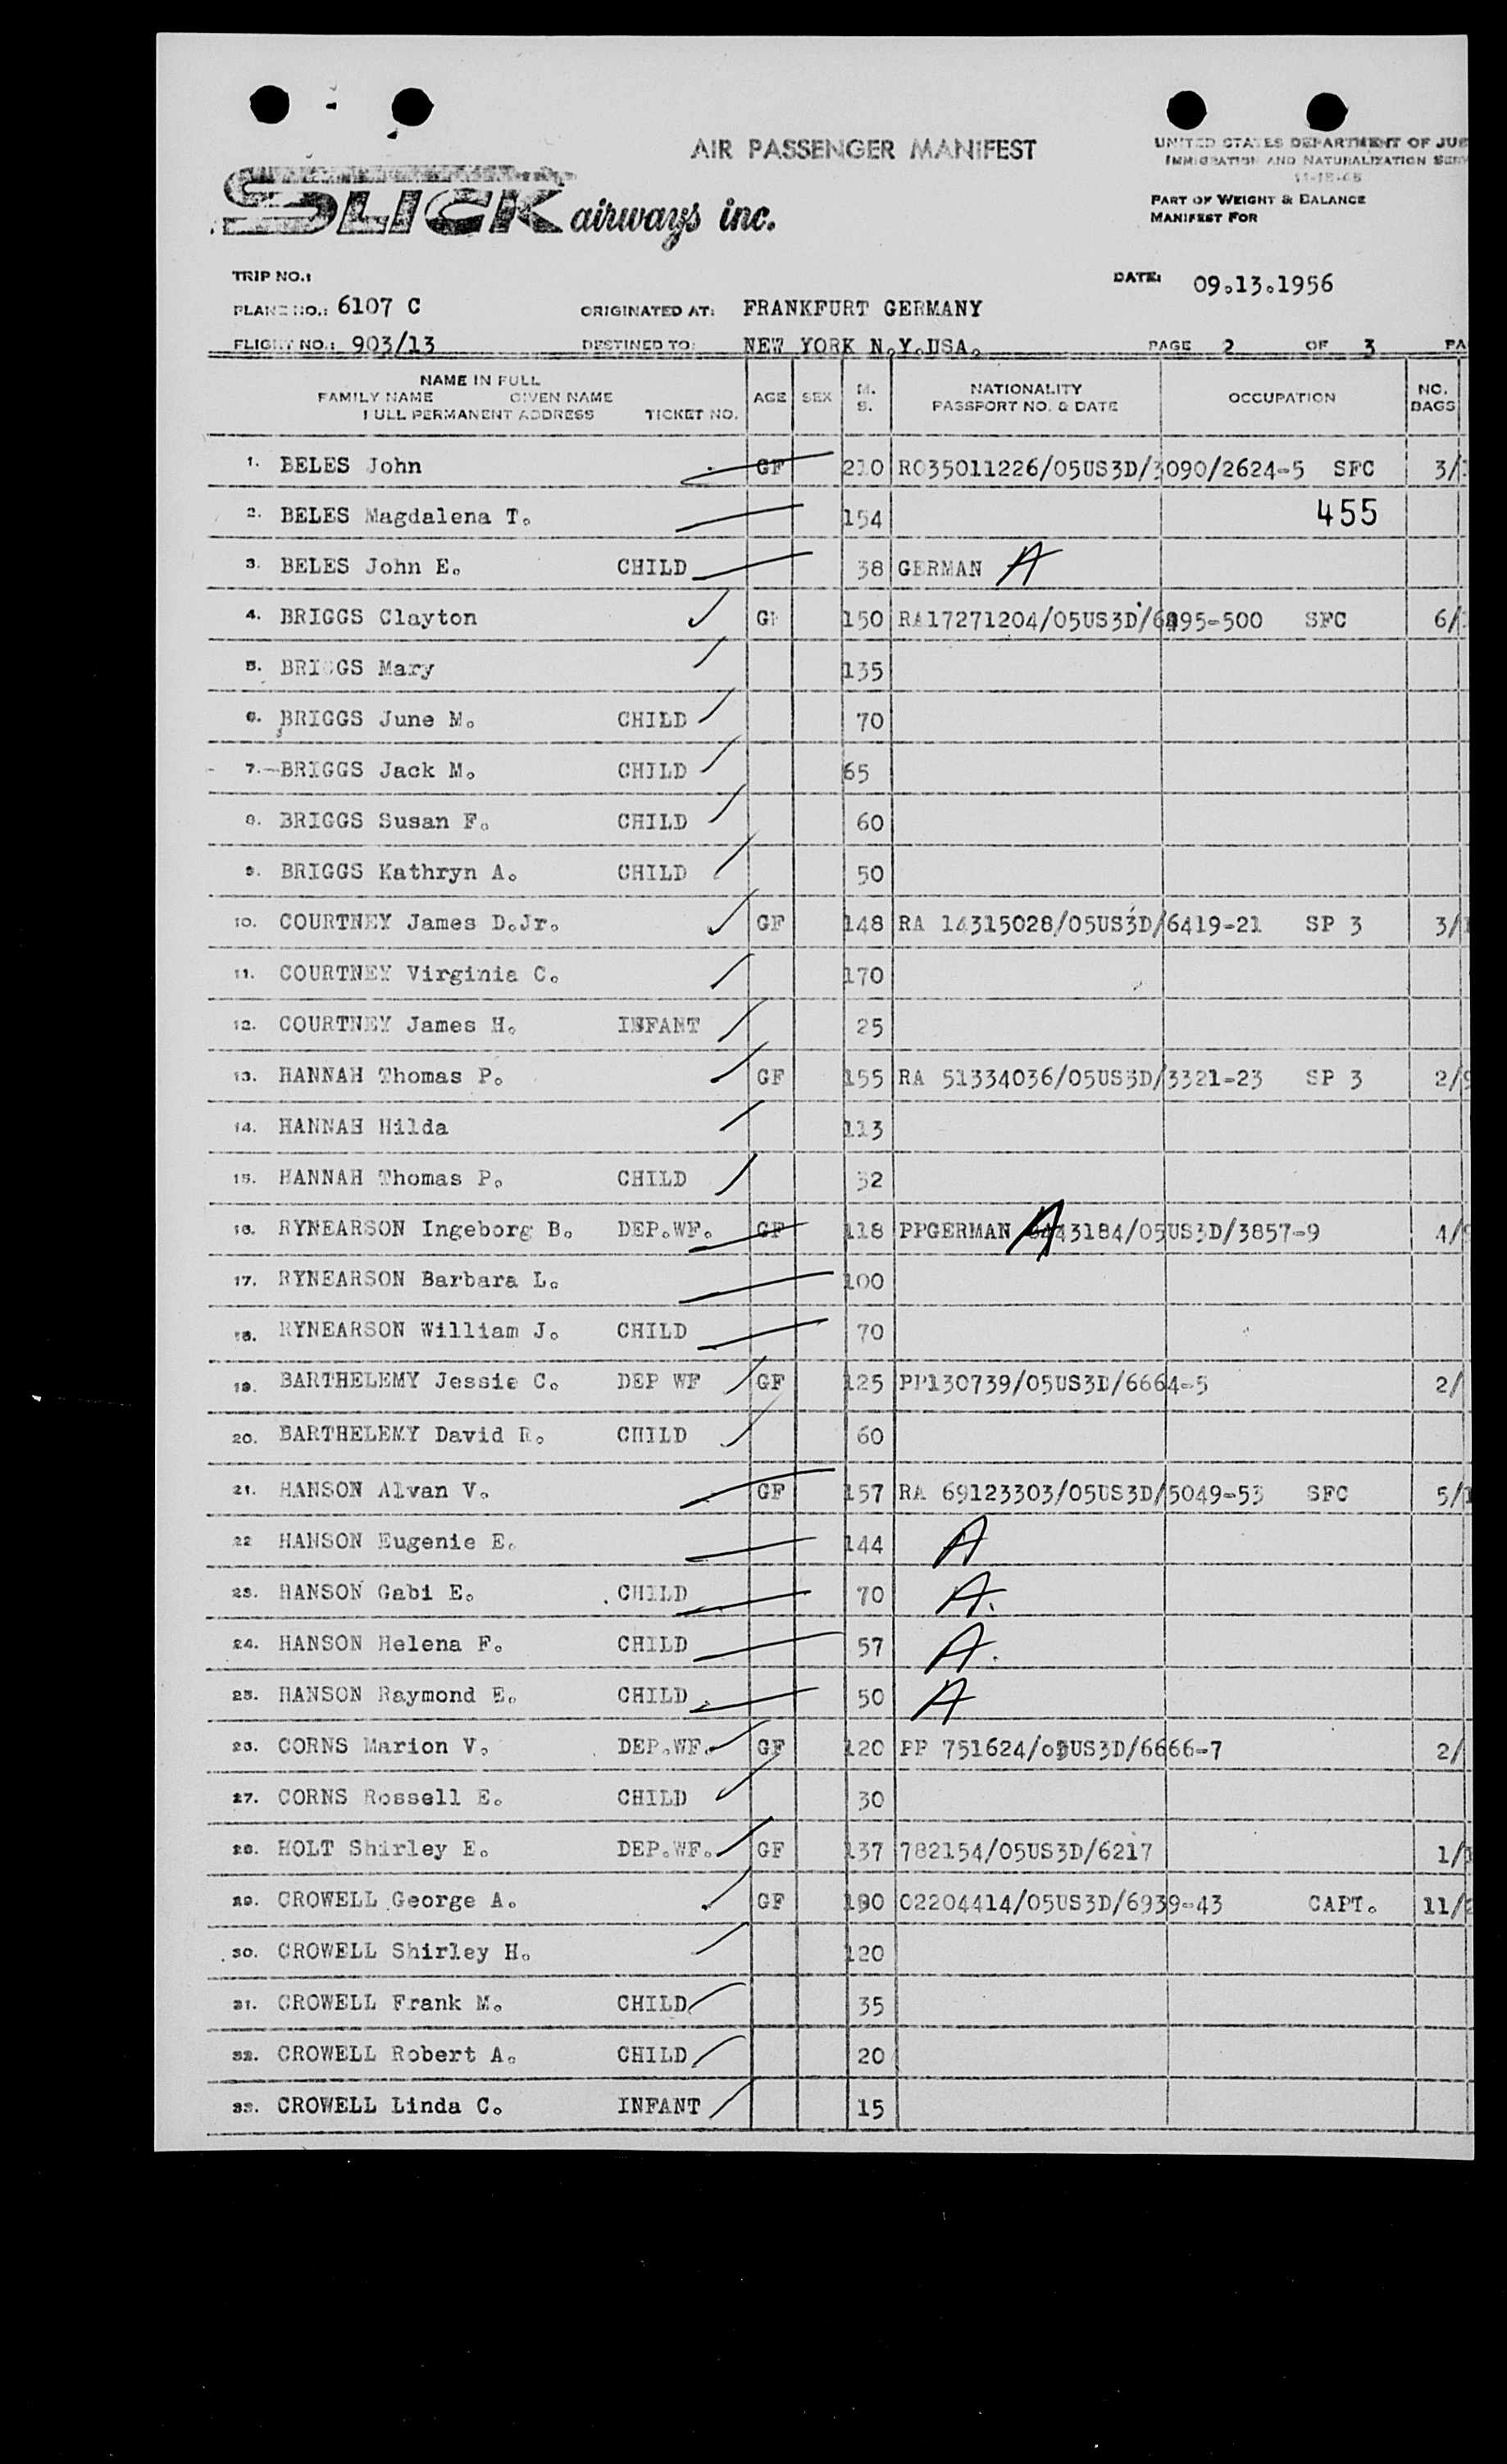 AIR PASSENGER MANIFEST
UNITED STATES DEPARTMENT OF JUS
IMMIGRATION AND NATURALIZATION SERV
SLICK airways inc.
PART OF WEIGHT & BALANCE
MANIFEST FOR
TRIP NO.:
DATE: 09.13.1956
PLANE NO.: 6107 C ORIGINATED AT: FRANKFURT GERMANY
FLIGHT NO.: 903/13 DESTINED TO: NEW YORK N.Y.USA. PAGE 2 OF 3 PA
NAME IN FULL
FAMILY NAME GIVEN NAME
FULL PERMANENT ADDRESS TICKET NO. AGE SEX M. S. NATIONALITY PASSPORT NO. & DATE OCCUPATION NO. BAGS
1. BELES John GF 210 RO35011226/05US3D/3090/2624-5 SFC 3/
2. BELES Magdalena T. 154 455
3. BELES John E. CHILD 38 GERMAN A
4. BRIGGS Clayton GF 150 RA17271204/05US3D/6495-500 SFC 6/
5. BRIGGS Mary 135
6. BRIGGS June M. CHILD 70
7. BRIGGS Jack M. CHILD 65
8. BRIGGS Susan F. CHILD 60
9. BRIGGS Kathryn A. CHILD 50
10. COURTNEY James D.Jr. GF 148 RA 14315028/05US3D/6419-21 SP 3 3/1
11. COURTNEY Virginia C. 170
12. COURTNEY James H. INFANT 25
13. HANNAH Thomas P. GF 155 RA 51334036/05US3D/3321-23 SP 3 2/9
14. HANNAH Hilda 113
15. HANNAH Thomas P. CHILD 32
16. RYNEARSON Ingeborg B. DEP.WF. GF 118 PPGERMAN A 3184/05US3D/3857-9 4/9
17. RYNEARSON Barbara L. 100
18. RYNEARSON William J. CHILD 70
19. BARTHELEMY Jessie C. DEP WF GF 125 PP130739/05US3D/6664-5 2/
20. BARTHELEMY David R. CHILD 60
21. HANSON Alvan V. GF 157 RA 69123303/05US3D/5049-53 SFC 5/1
22 HANSON Eugenie E. 144 A
23. HANSON Gabi E. CHILD 70 A.
24. HANSON Helena F. CHILD 57 A.
25. HANSON Raymond E. CHILD 50 A
26. CORNS Marion V. DEP.WF. GF 120 PP 751624/05US3D/6666-7 2/
27. CORNS Rossell E. CHILD 30
28. HOLT Shirley E. DEP.WF. GF 137 782154/05US3D/6217 1/
29. CROWELL George A. GF 190 02204414/05US3D/6939-43 CAPT. 11/
30. CROWELL Shirley H. 120
31. CROWELL Frank M. CHILD 35
32. CROWELL Robert A. CHILD 20
33. CROWELL Linda C. INFANT 15